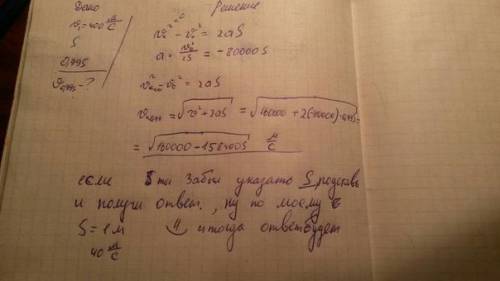 Дано
Решение
v₁=400 м/с
S
0,99S
v₀,₉₉ₛ - ?
v² - v₀² = 2aS
a = v₀²/2S = -80000S
v² - v₀² = 2aS
v = √v²+2aS = √160000 + 2(-80000)·0,99S =
= √160000 - 158400S м/с
если ты забыл указать S, подставь
и получи ответ., ну по моему
S = 1 м и тогда ответ будет
40 м/с